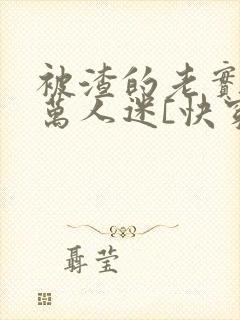 被渣的老實
萬人迷[快穿
聶瑩